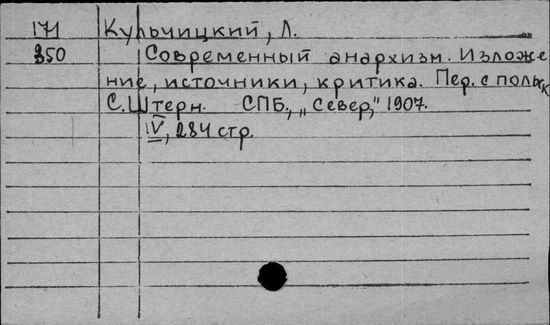 171 Кульчицкий, Л.
350 Современный анархизм. Изложе
ние, источники, критика. Пер. с польск
С. Штерн. СПБ, „Север,“ 1907.
IV, 284 стр.